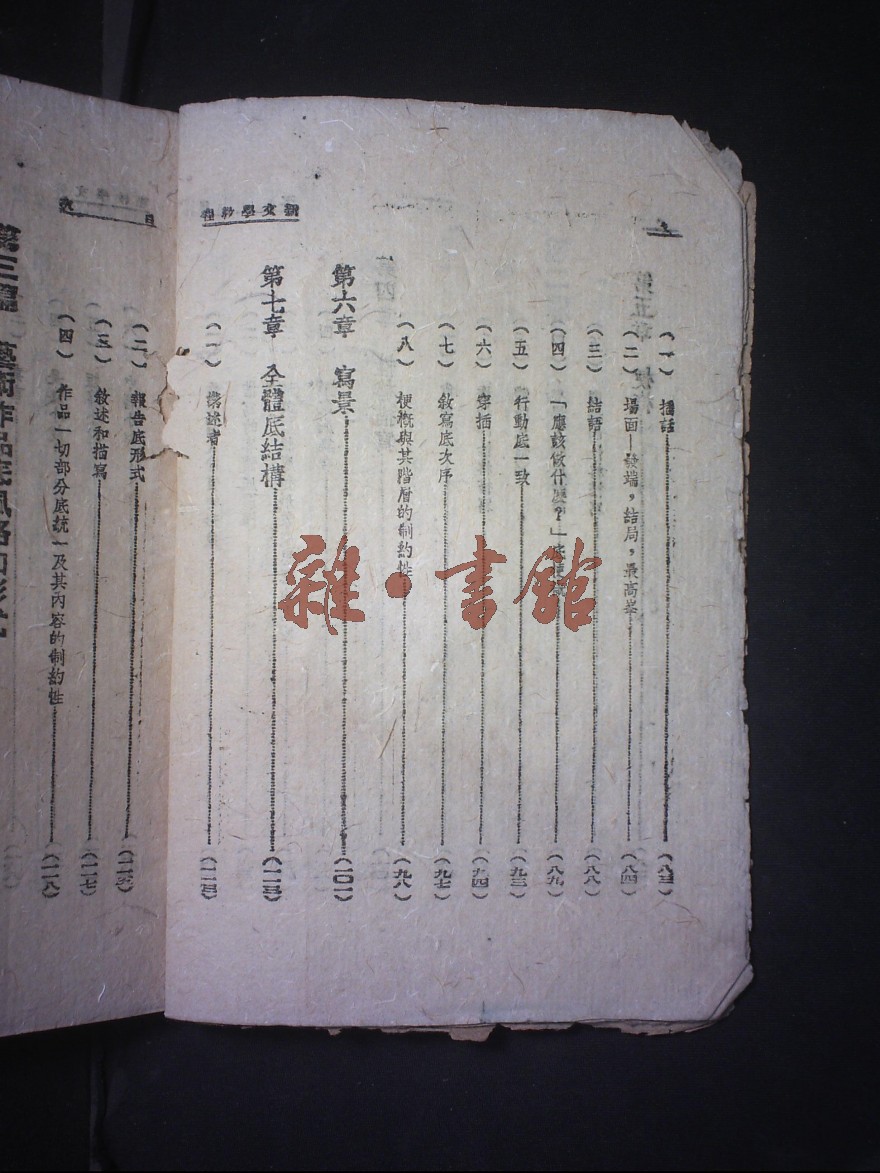 新文學教程
(一) 插話 (八三)
(二) 場面—發端，結局，最高峯 (八四)
(三) 結語 (八八)
(四) 「應該做什麼？」底 (八九)
(五) 行動底一致 (九三)
(六) 穿插 (九四)
(七) 敘寫底次序 (九七)
(八) 梗概與其階層的制約性 (九八)
第六章 寫景 (一〇一)
第七章 全體底結構 (一一三)
(一) 描述者 (一一三)
目次
(二) 報告底形式
(三) 敘述和描寫 (一一七)
(四) 作品一切部分底統一及其內容的制約性 (一一八)
第三編 藝術作品底風格和形式
雜·書館